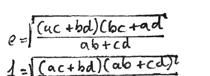 e = √((ac+bd)(bc+ad / ab+cd
f = √((ac+bd)(ab+cd)